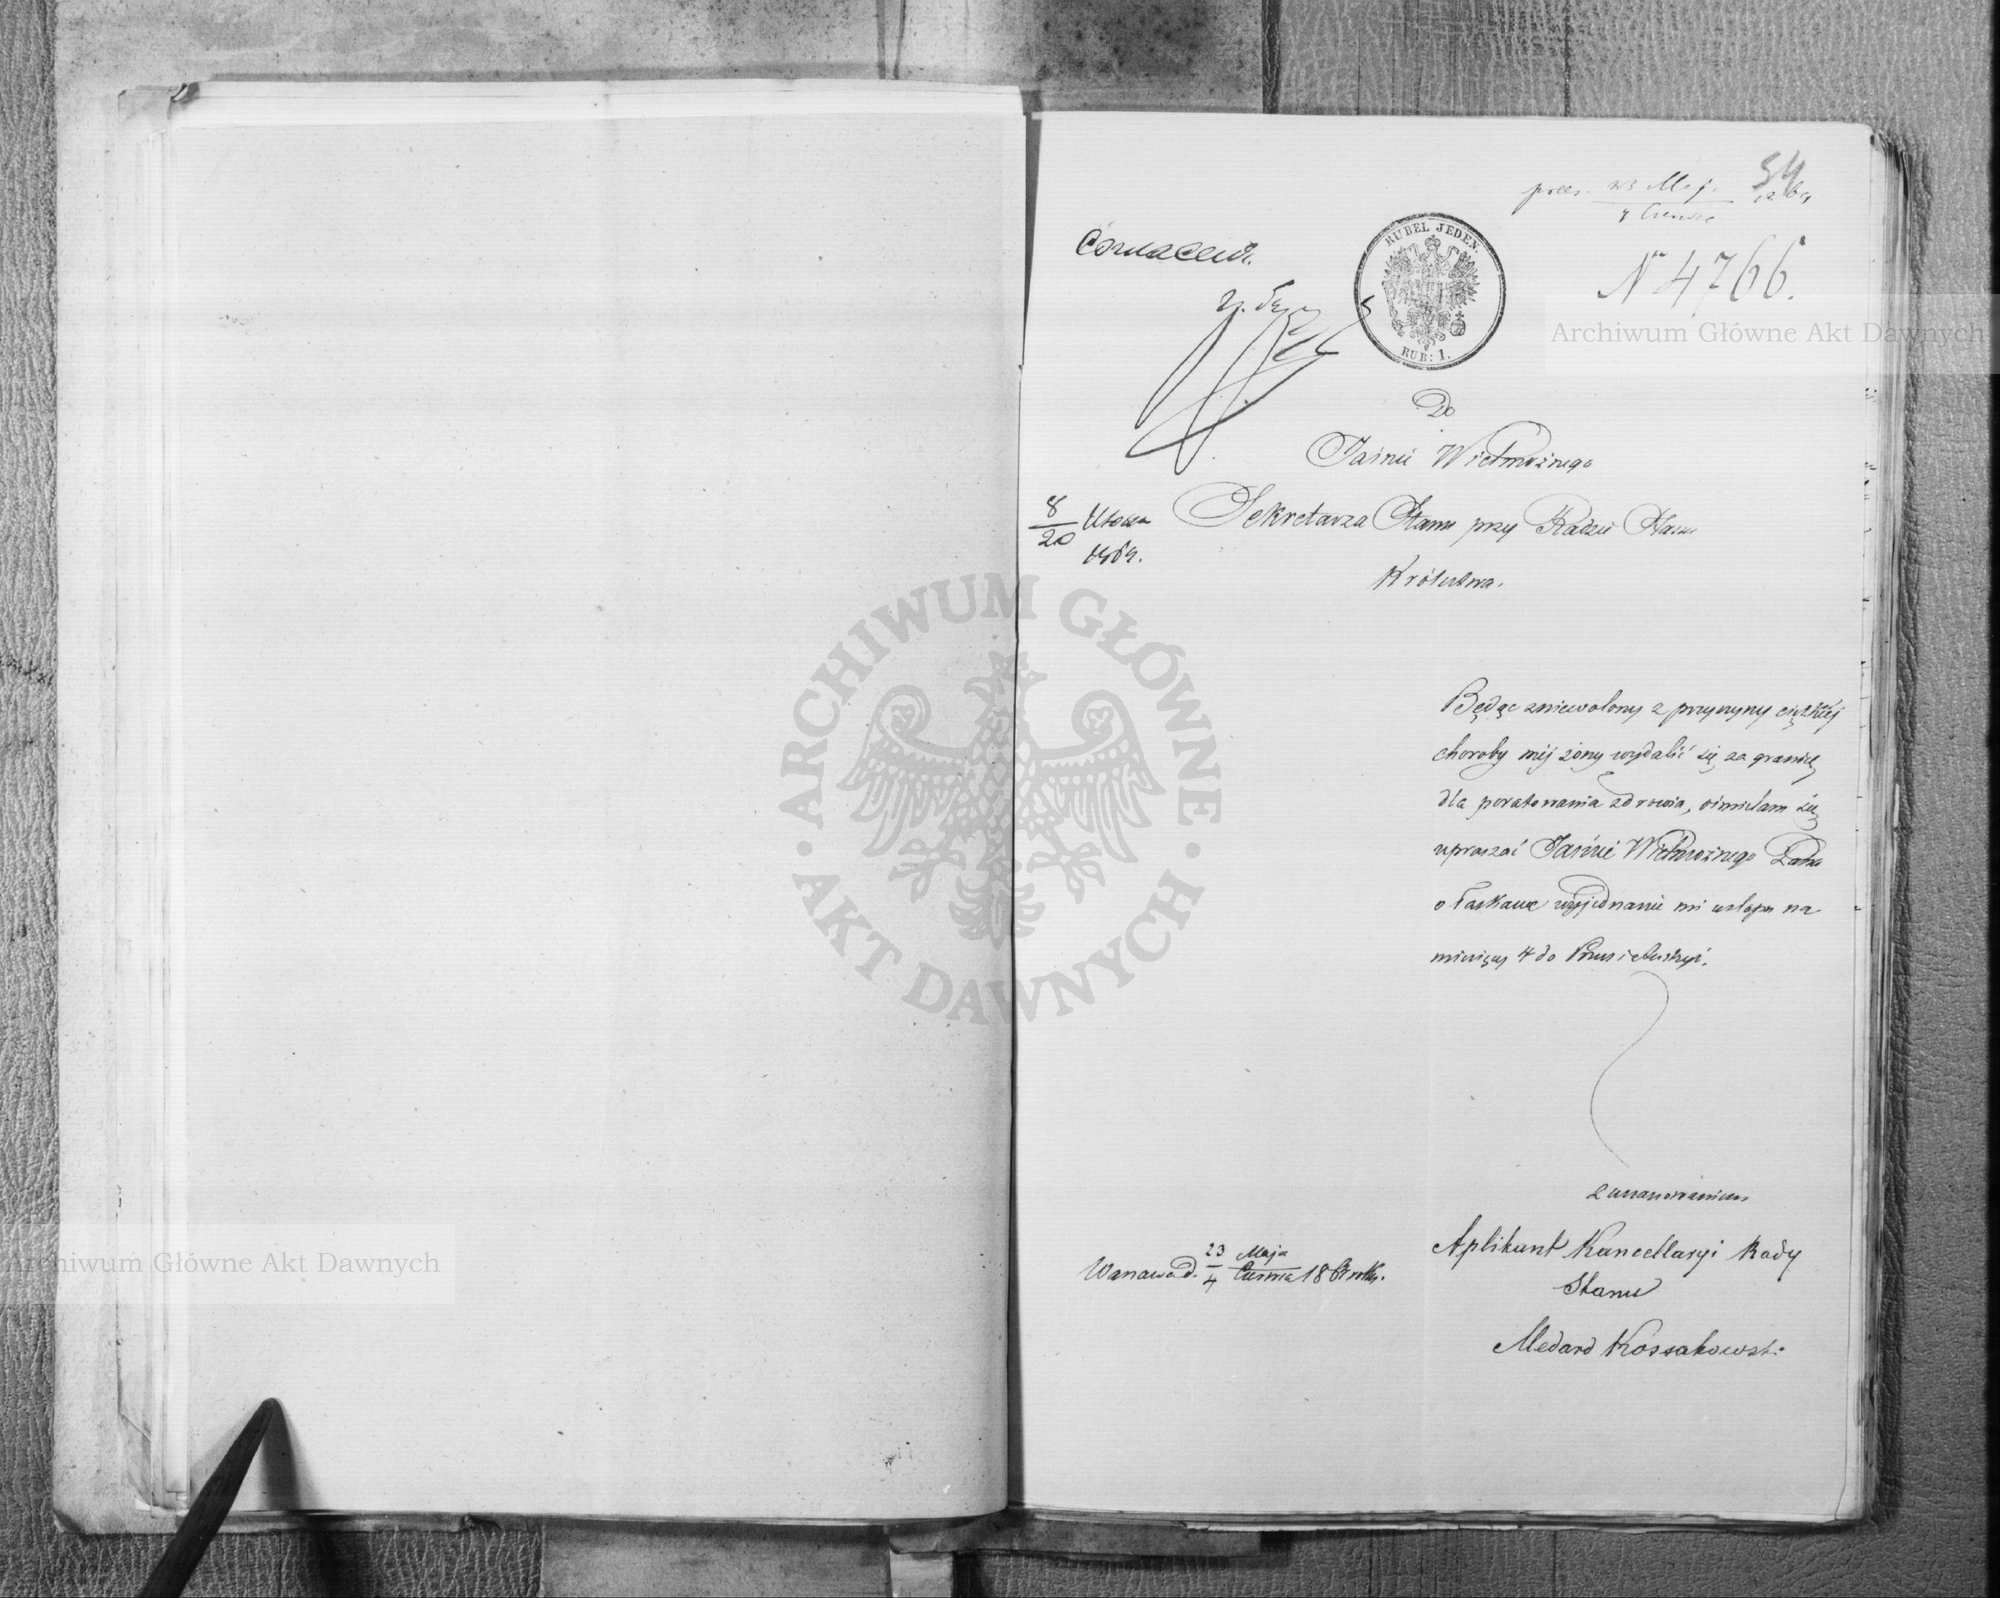 54
pres. 23 Maj.
4 Czerwca
N 4766.
RUBEL JEDEN.
RUB: 1.
Согласенъ.
Do
Jaśnie Wielmożnego
Sekretarza Stanu przy Radzie Stanu
Królestwa.
8
20 Июня
1864.
Będąc zniewolony z przyczyny ciężkiej
choroby mej żony wydalić się za granicę
dla poratowania zdrowia, ośmielam się
upraszać Jaśnie Wielmożnego Pana
o łaskawe wyjednanie mi urlopu na
miesięcy 4 do Prus i Austryi.
z uszanowaniem
Aplikant Kancellaryi Rady
Stanu
Medard Kossakowski
Warszawa d. 23 Maja
4 Czerwca 1864 roku.
Archiwum Główne Akt Dawnych
Archiwum Główne Akt Dawnych
ARCHIWUM GŁÓWNE · AKT DAWNYCH ·